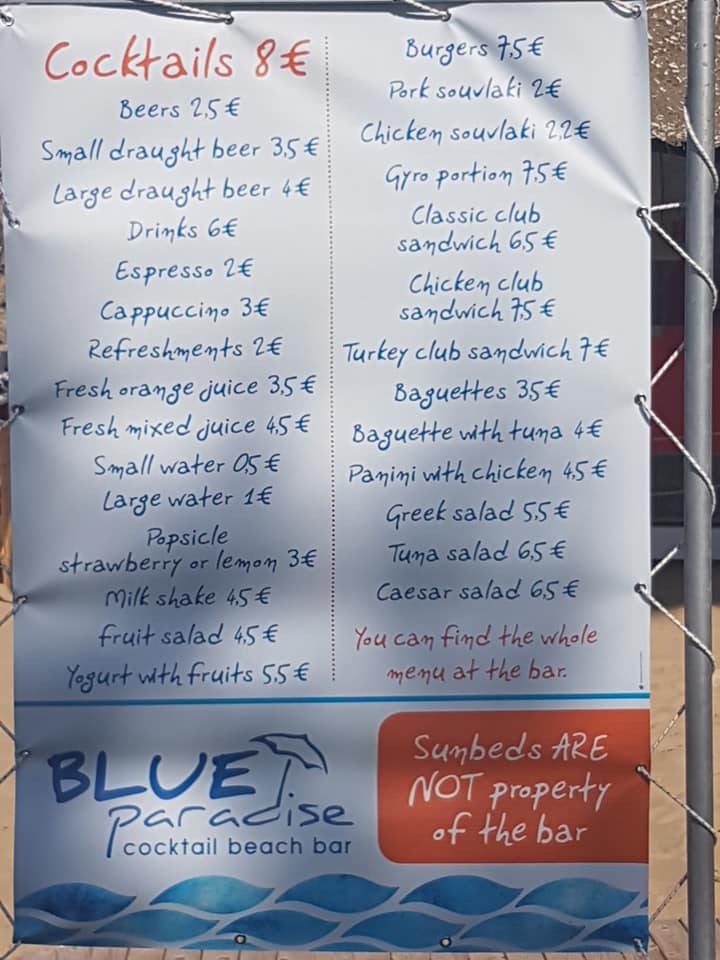 Cocktails 8€
Beers 2,5€
Small draught beer 3,5€
Large draught beer 4€
Drinks 6€
Espresso 2€
Cappuccino 3€
Refreshments 2€
Fresh orange juice 3,5€
Fresh mixed juice 4,5€
Small water 0,5€
Large water 1€
Popsicle
strawberry or lemon 3€
Milk shake 4,5€
fruit salad 4,5€
Yogurt with fruits 5,5€
Burgers 7,5€
Pork souvlaki 2€
Chicken souvlaki 2,2€
Gyro portion 7,5€
Classic club
sandwich 6,5€
Chicken club
sandwich 7,5€
Turkey club sandwich 7€
Baguettes 3,5€
Baguette with tuna 4€
Panini with chicken 4,5€
Greek salad 5,5€
Tuna salad 6,5€
Caesar salad 6,5€
You can find the whole
menu at the bar.
BLUE
paradise
cocktail beach bar
Sunbeds ARE
NOT property
of the bar